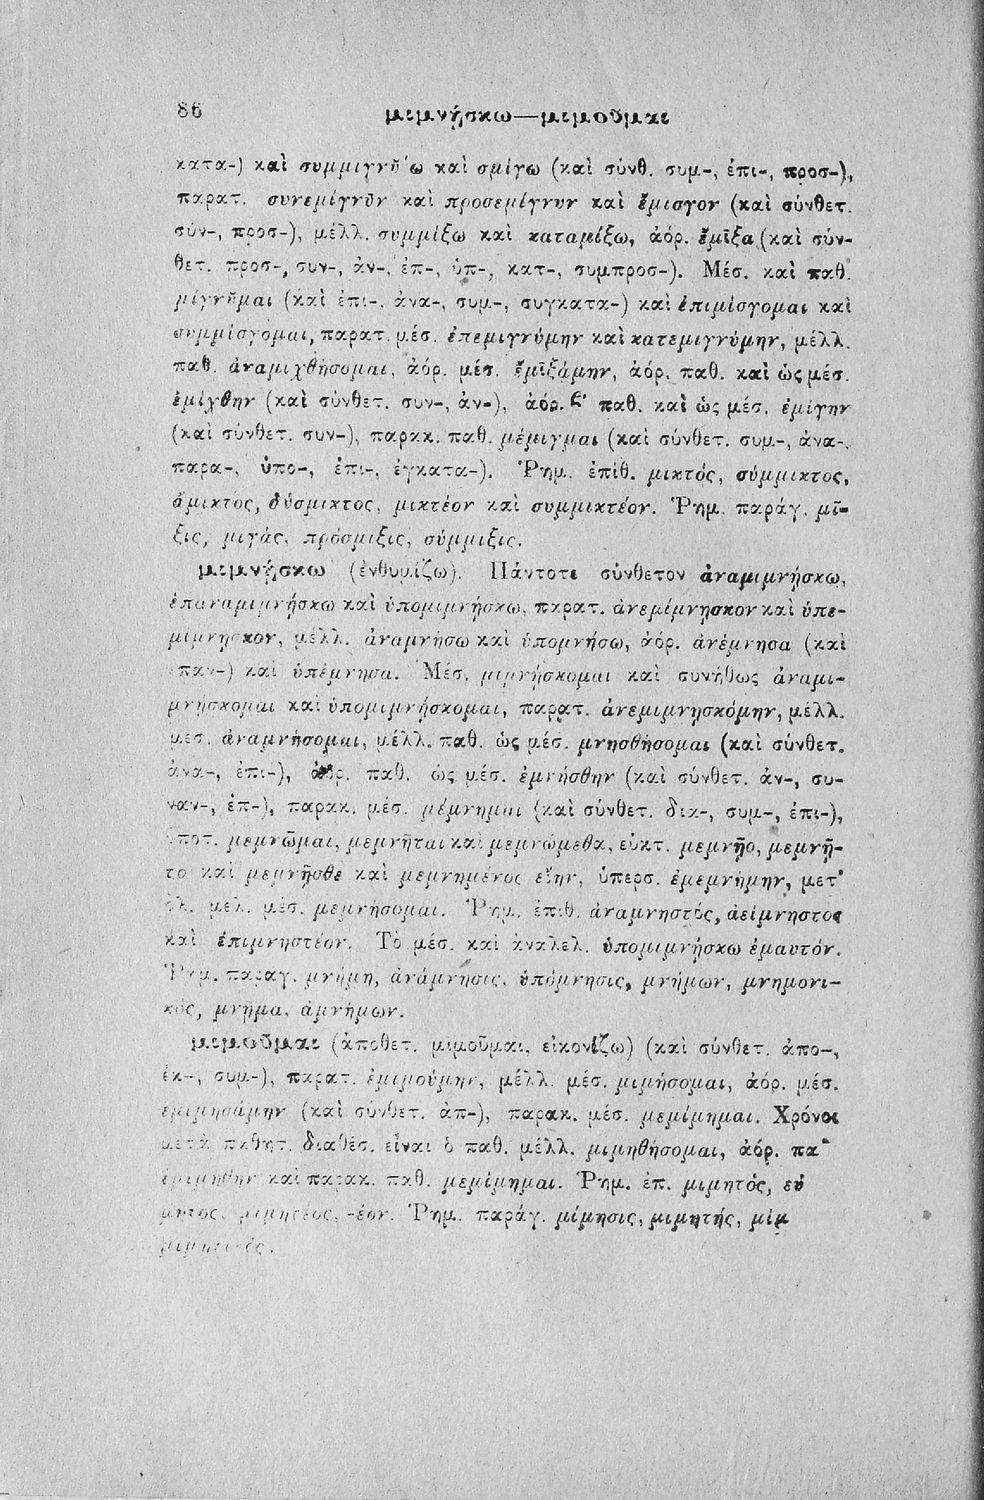 86 μιμνήσκω—μιμοῦμαι
κατα-) καὶ συμμιγνύω καὶ σμίγω (καὶ σύνθ. συμ-, ἐπι-, προσ-),
παρατ. συνεμίγνῡν καὶ προσεμίγνυν καὶ ἔμισγον (καὶ σύνθετ.
σύν-, προσ-), μέλλ. συμμίξω καὶ καταμίξω, ἀόρ. ἔμῑξα (καὶ σύν-
θετ. προσ-, συν-, ἀν-, ἐπ-, ὑπ-, κατ-, συμπροσ-). Μέσ. καὶ παθ.
μίγνῠμαι (καὶ ἐπι-, ἀνα-, συμ-, συγκατα-) καὶ ἐπιμίσγομαι καὶ
συμμίσγομαι, παρατ. μέσ. ἐπεμιγνύμην καὶ κατεμιγνύμην, μέλλ.
παθ. ἀναμιχθήσομαι, ἀόρ. μέσ. ἐμῑξάμην, ἀόρ. παθ. καὶ ὡς μέσ.
ἐμίχθην (καὶ σύνθετ. συν-, ἀν-), ἀόρ. β' παθ. καὶ ὡς μέσ. ἐμίγην
(καὶ σύνθετ. συν-), παρακ. παθ. μέμιγμαι (καὶ σύνθετ. συμ-, ἀνα-,
παρα-, ὑπο-, ἐπι-, ἐγκατα-). Ῥημ. ἐπίθ. μικτός, σύμμικτος,
ἄμικτος, δύσμικτος, μικτέον καὶ συμμικτέον. Ῥημ. παράγ. μῖ-
ξις, μιγάς, πρόσμιξις, σύμμιξις.
μιμνήσκω (ἐνθυμίζω). Πάντοτε σύνθετον ἀναμιμνήσκω,
ἐπαναμιμνήσκω καὶ ὑπομιμνήσκω, παρατ. ἀνεμίμνησκον καὶ ὑπε-
μίμνησκον, μέλλ. ἀναμνήσω καὶ ὑπομνήσω, ἀόρ. ἀνέμνησα (καὶ
ἐπαν-) καὶ ὑπέμνησα. Μέσ. μιμνήσκομαι καὶ συνήθως ἀναμι-
μνήσκομαι καὶ ὑπομιμνήσκομαι, παρατ. ἀνεμιμνησκόμην, μέλλ.
μέσ. ἀναμνήσομαι, μέλλ. παθ. ὡς μέσ. μνησθήσομαι (καὶ σύνθετ.
ἀνα-, ἐπι-), ἀόρ. παθ. ὡς μέσ. ἐμνήσθην (καὶ σύνθετ. ἀν-, συ-
ναν-, ἐπ-), παρακ. μέσ. μέμνημαι (καὶ σύνθετ. δια-, συμ-, ἐπι-),
ὑποτ. μεμνῶμαι, μεμνῆται καὶ μεμνώμεθα, εὐκτ. μεμνῇο, μεμνῇ-
το καὶ μεμνῇσθε καὶ μεμνημένος εἴην, ὑπερσ. ἐμεμνήμην, μετ'
ὀλ. μέλ. μέσ. μεμνήσομαι. Ῥημ. ἐπιθ. ἀναμνηστός, ἀείμνηστος
καὶ ἐπιμνηστέον. Τὸ μέσ. καὶ ἀναλελ. ὑπομιμνήσκω ἐμαυτόν.
Ῥημ. παραγ. μνήμη, ἀνάμνησις, ὑπόμνησις, μνήμων, μνημονι-
κός, μνῆμα, ἀμνήμων.
μιμοῦμαι (ἀποθετ. μιμοῦμαι, εἰκονίζω) (καὶ σύνθετ. ἀπο-,
ἐκ-, συμ-), παρατ. ἐμιμούμην, μέλλ. μέσ. μιμήσομαι, ἀόρ. μέσ.
ἐμιμησάμην (καὶ σύνθετ. ἀπ-), παρακ. μέσ. μεμίμημαι. Χρόνοι
μετὰ παθητ. διαθέσ. εἶναι ὁ παθ. μέλλ. μιμηθήσομαι, ἀόρ. πα
ἐμιμήθην καὶ παρακ. παθ. μεμίμημαι. Ῥημ. ἐπ. μιμητός, εὐ
μητος, μιμητέος, -έον. Ῥημ. παράγ. μίμησις, μιμητής, μίμ
μιμητικός.